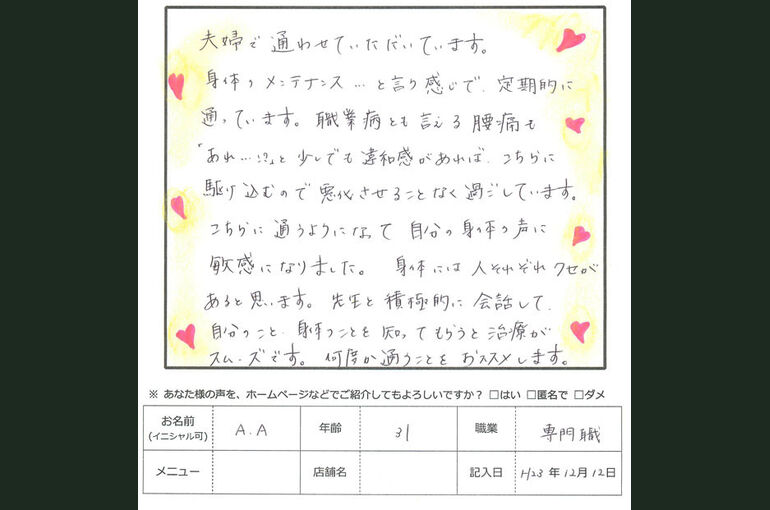 夫婦で通わせていただいています。
身体のメンテナンス…と言う感じで、定期的に
通っています。職業病とも言える腰痛も
「あれ…!?」と少しでも違和感があれば、こちらに
駆け込むので悪化させることなく過ごしています。
こちらに通うようになって自分の身体の声に
敏感になりました。身体には人それぞれクセが
あると思います。先生と積極的に会話して、
自分のこと、身体のことを知ってもらうと治療が
スムーズです。何度か通うことをおススメします。
※ あなた様の声を、ホームページなどでご紹介してもよろしいですか？ □はい □匿名で □ダメ
お名前 (イニシャル可) A.A 年齢 31 職業 専門職
メニュー 店舗名 記入日 H23年12月12日